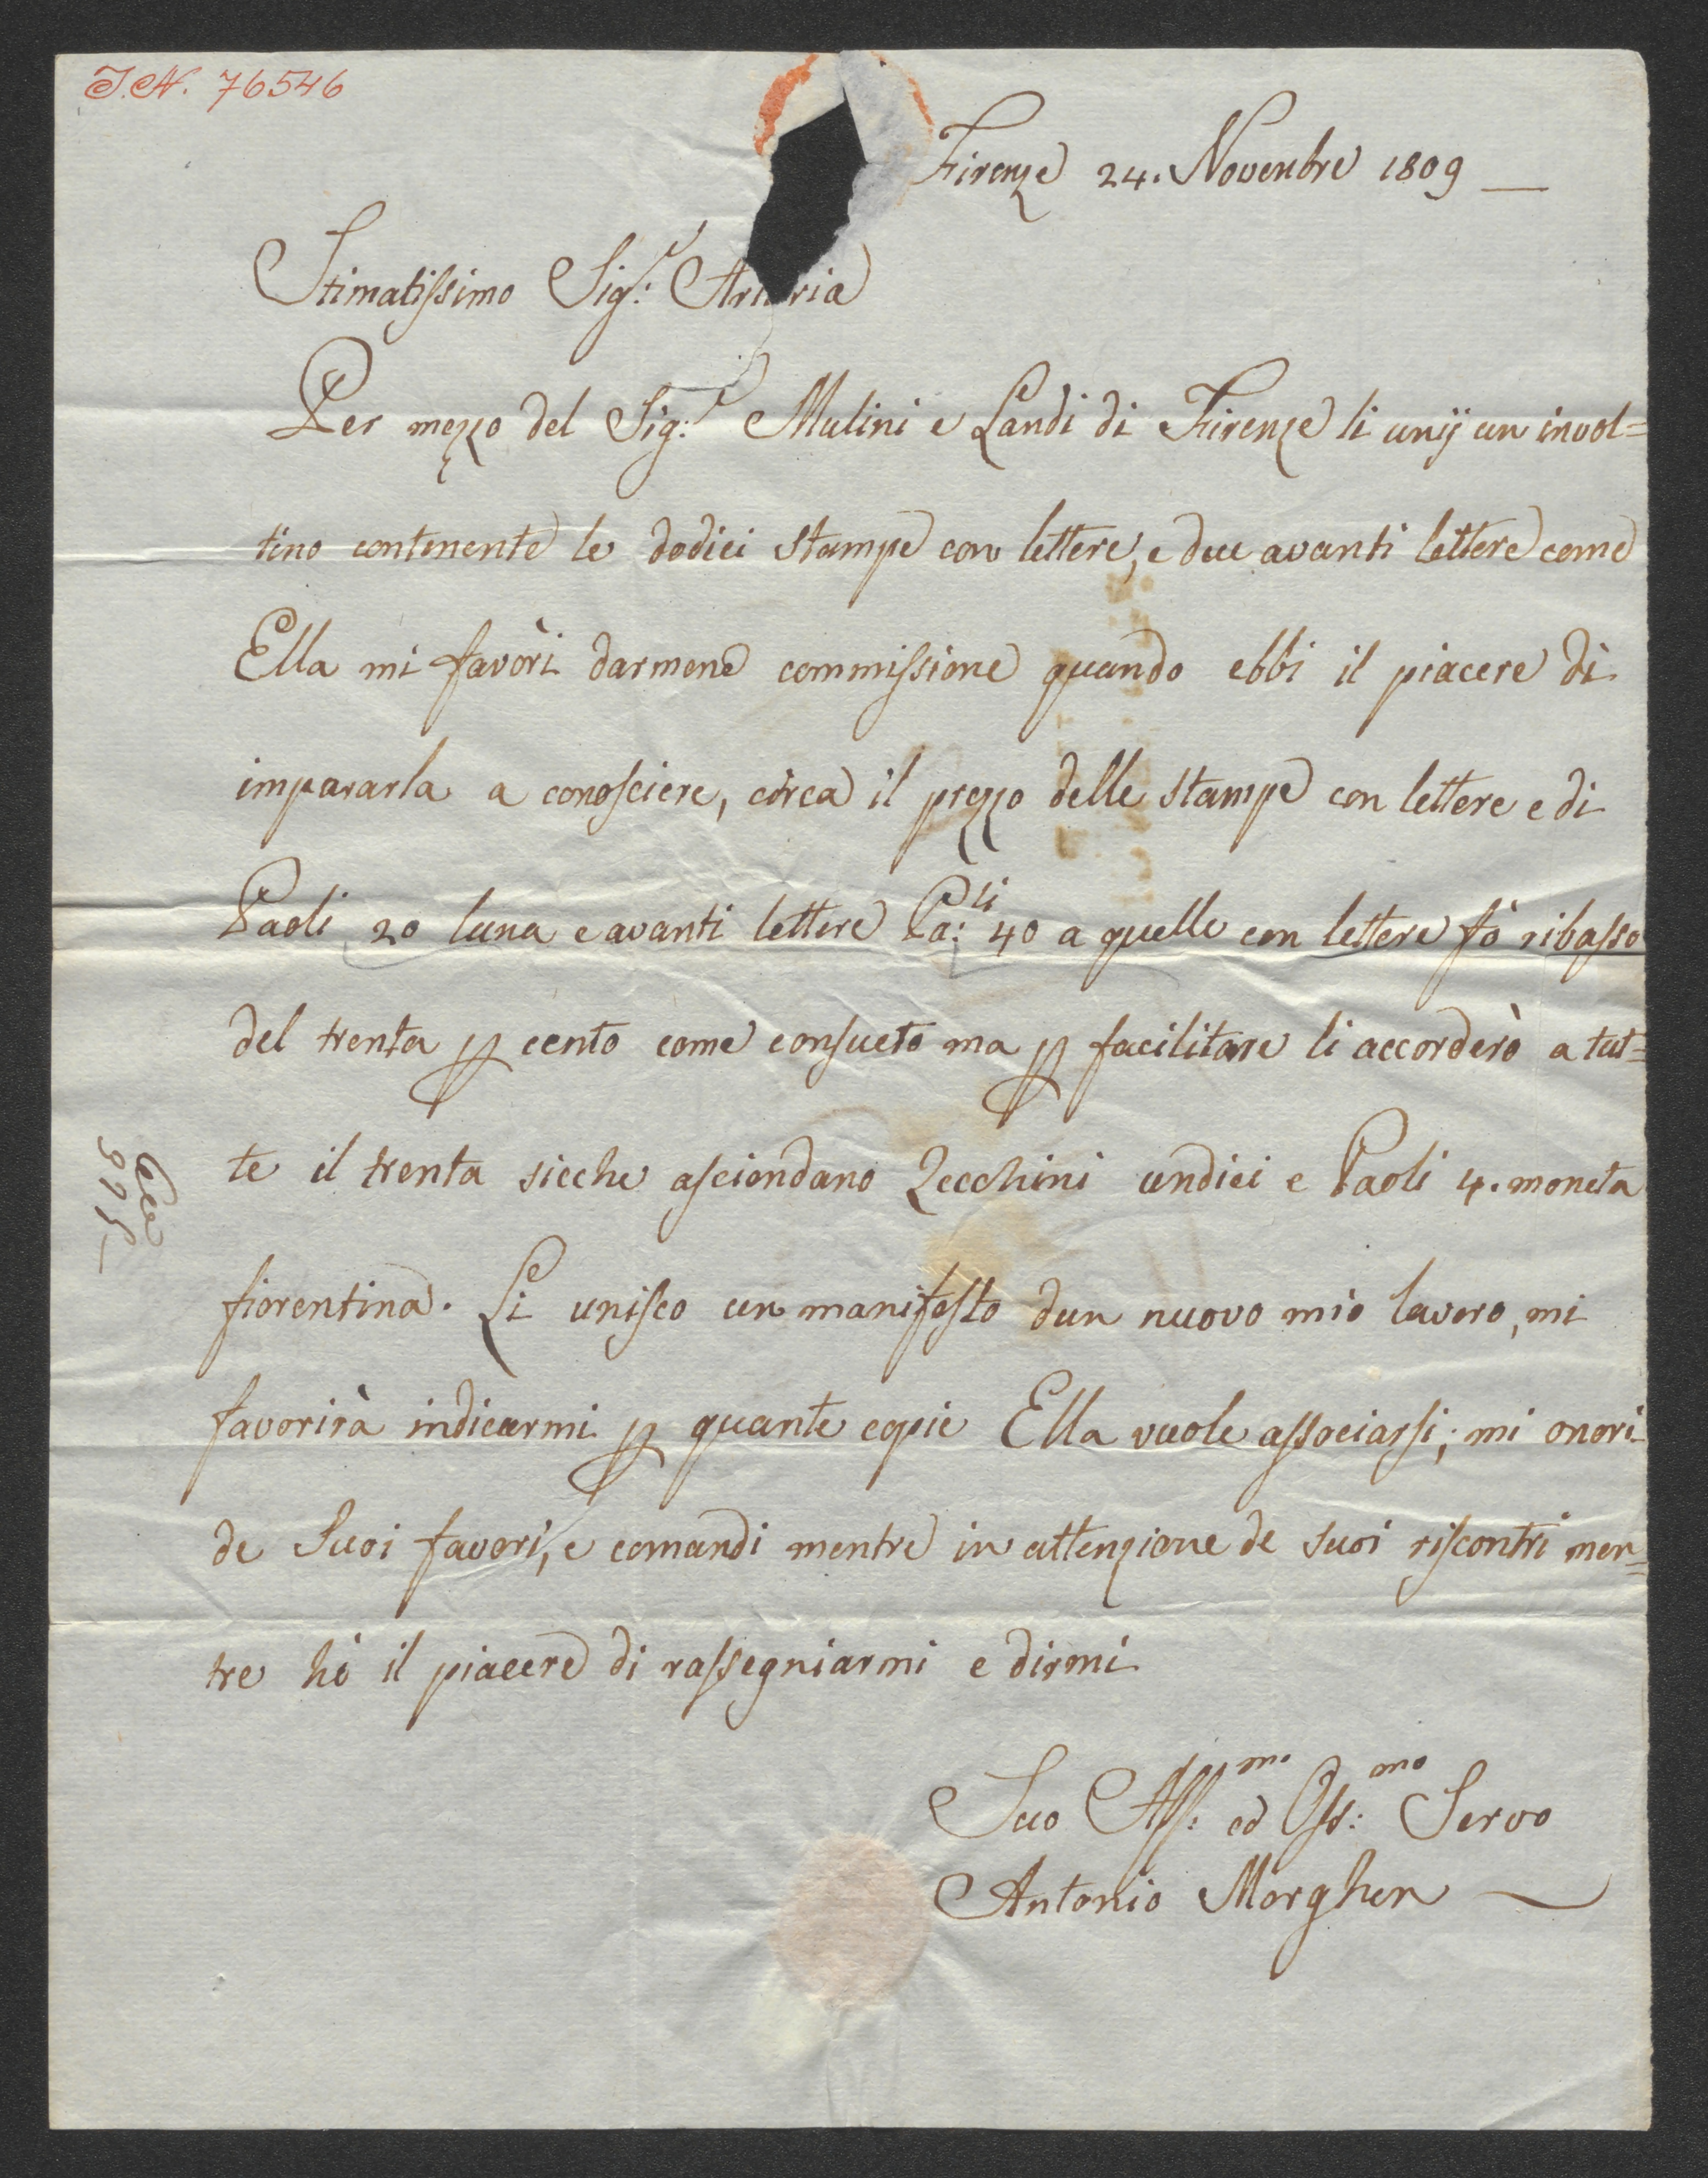 I.N. 76546
Firenze 24. Novembre 1809 —
Stimatissimo Sig.r Artaria
Per mezzo del Sig.r Mulini e Landi di Firenze li unij un invol=
tino contenente le dodici stampe con lettere, e due avanti lettere come
Ella mi favòri darmene commissione quando ebbi il piacere di
impararla a conosciere, circa il prezzo delle stampe con lettere e di
Paoli 20 luna e avanti lettere Pa:li 40 a quelle con lettere fò ribasso
del trenta p cento come consueto ma p facilitare li accorderò a tut=
te il trenta sicche asciendano Zecchini undici e Paoli 4. moneta
fiorentina. Li unisco un manifesto dun nuovo mio lavoro, mi
favorirà indicarmi p quante copie Ella vuole associarsi; mi onori
de Suoi favori, e comandi mentre in attenzione de suoi riscontri men=
tre hò il piacere di rassegniarmi e dirmi
Suo Aff:mo ed Oss:mo Servo
Antonio Morghen